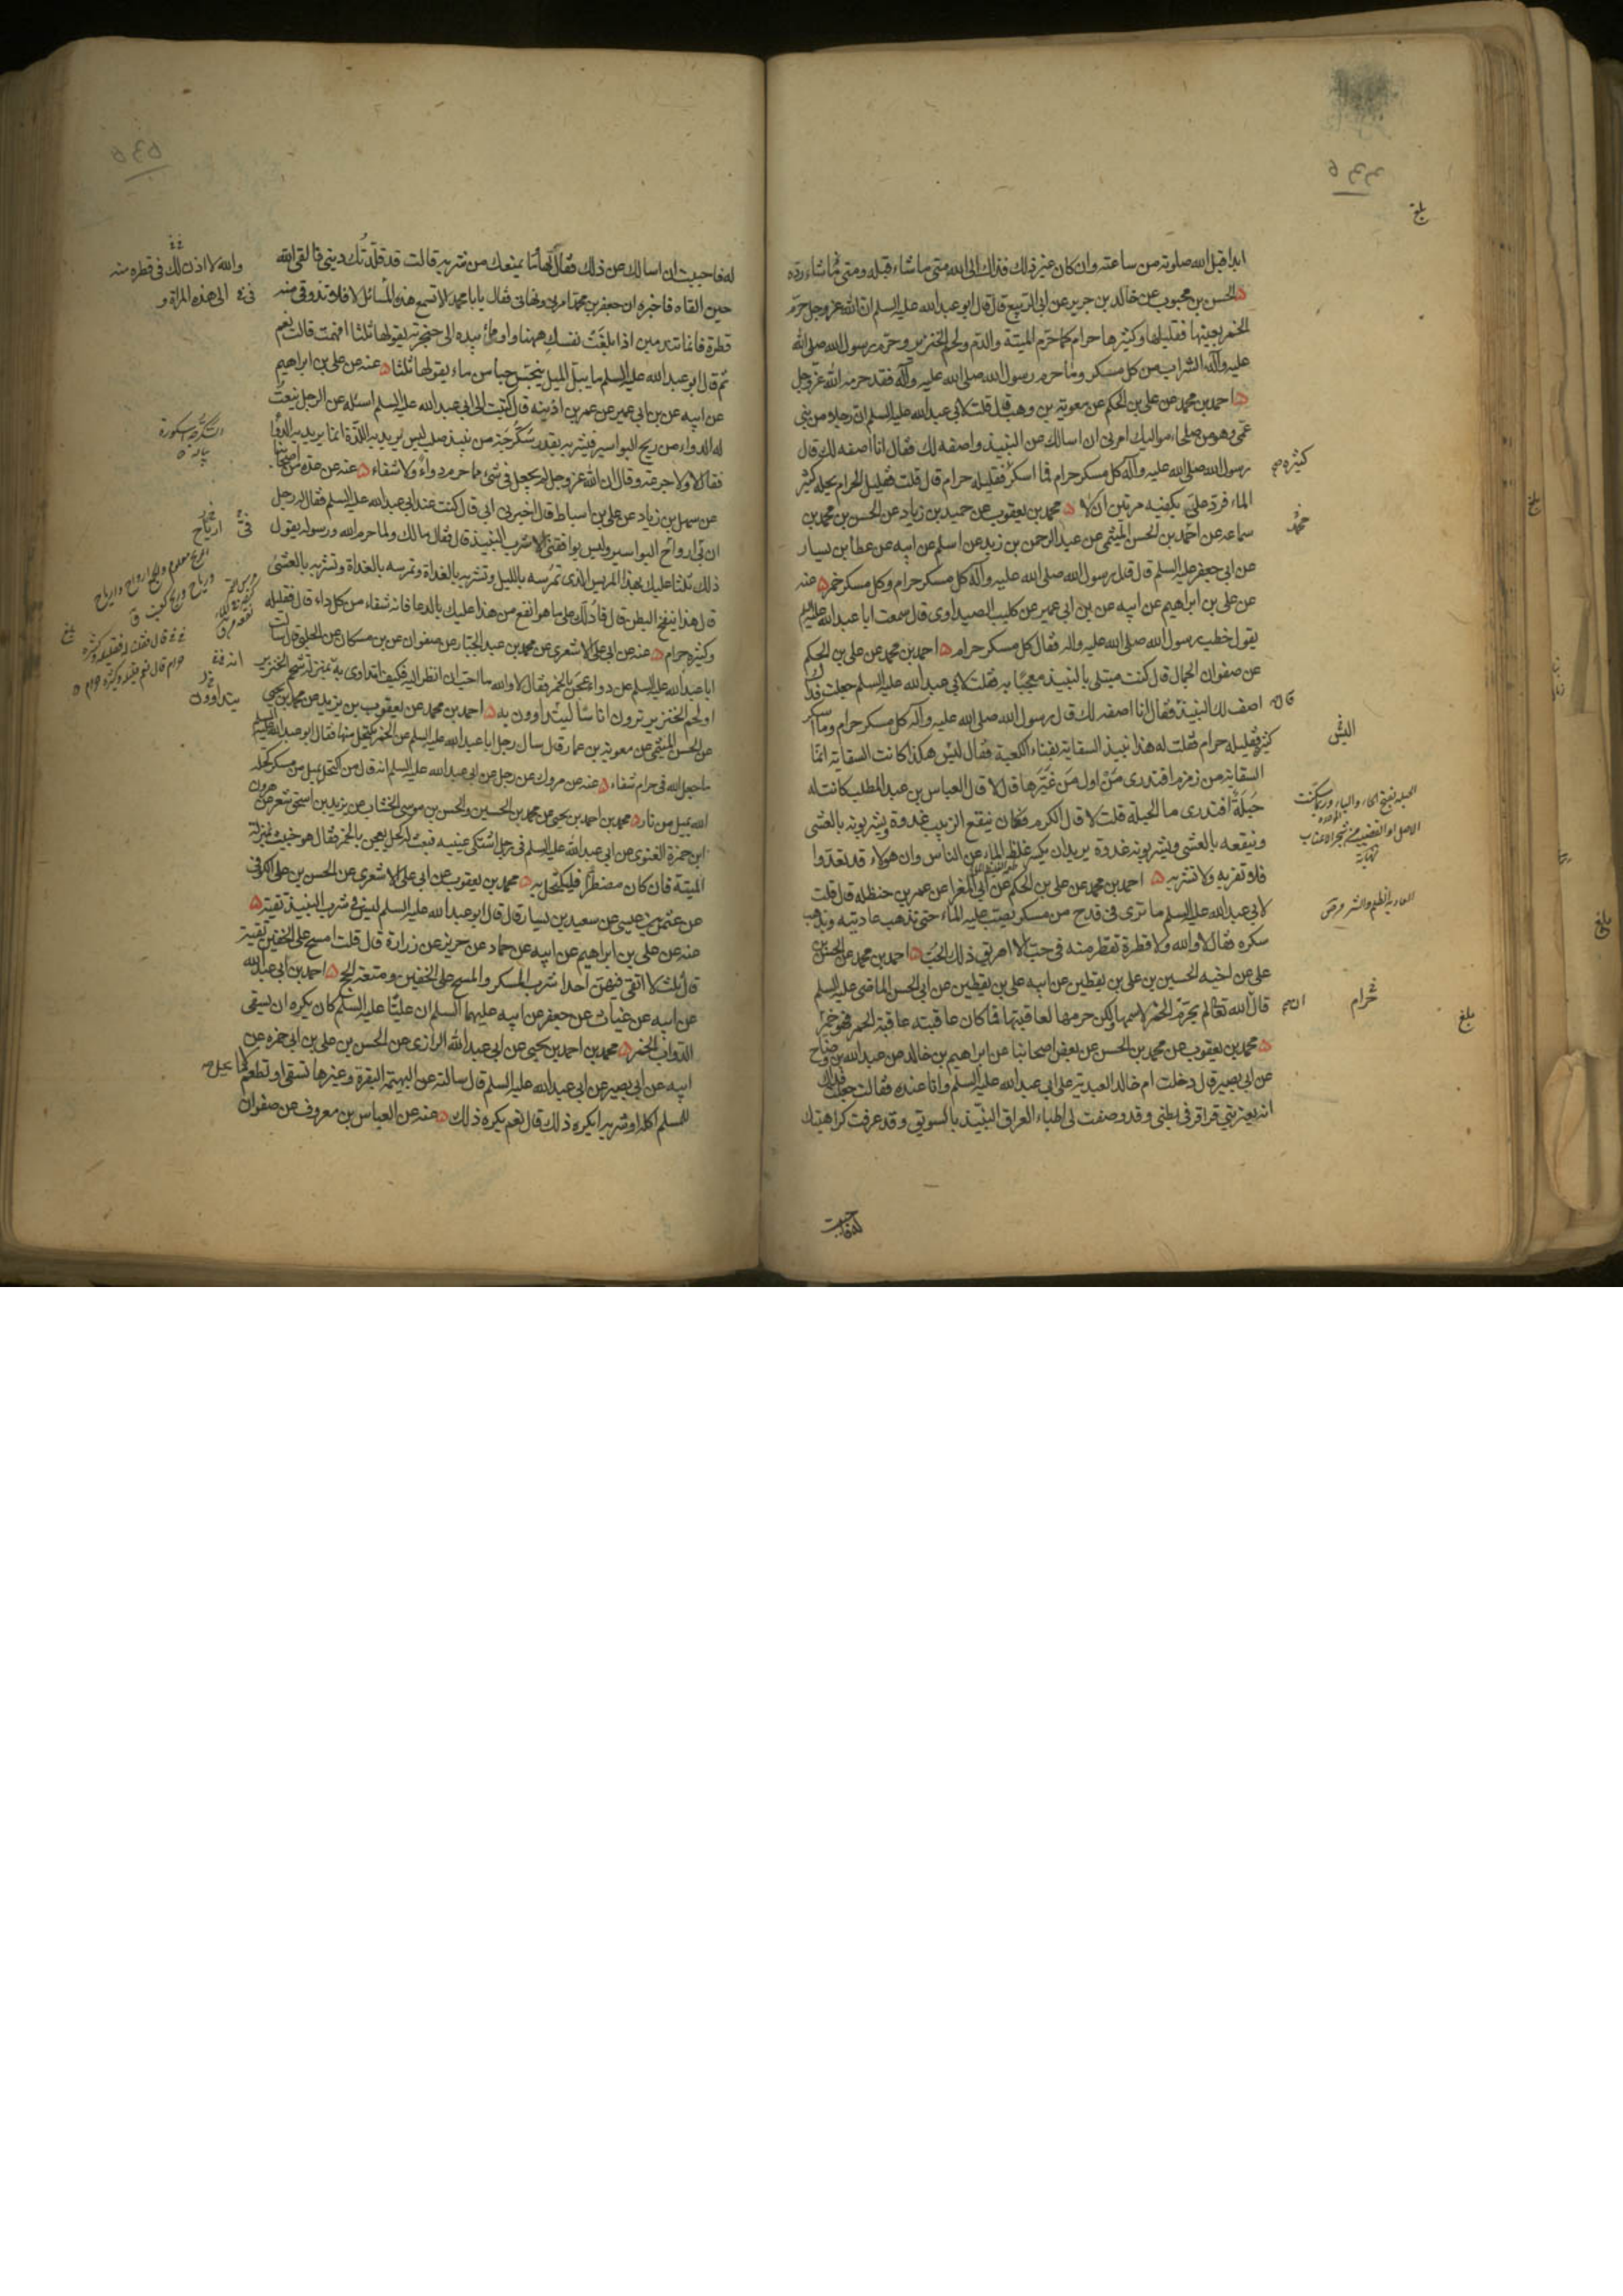 ابدا قبل الله صلوته من ساعته وان كان غير ذلك فذلك الى الله متى ما شاء قبله ومتى ما شاء رده
الحسن بن محبوب عن خالد بن جرير عن ابى الربيع قال قال ابو عبد الله عليه السلم ان الله عز وجل حرّم
الخمر بعينها فقليلها وكثيرها حرام كما حرّم الميتة والدّم ولحم الخنزير وحرّم رسول الله صلى الله
عليه وآله الشراب من كل مسكر وما حرم رسول الله صلى الله عليه وآله فقد حرمه الله عزّ وجل
احمد بن محمد عن على بن الحكم عن معوية بن وهب قال قلت لابى عبد الله عليه السلم ان رجلا من بنى
عمّى وهو من صلحاء مواليك امرنى ان اسالك عن النبيذ واصفه لك فقال انا اصفه لك قال
رسول الله صلى الله عليه وآله كل مسكر حرام فما اسكر فقليله حرام قال قلت فقليل الحرام يحله كثير
كثيره
الماء فردّ علىّ بكفيه مرتين ان لا محمد بن يعقوب عن حميد بن زياد عن الحسن بن محمد بن
سماعه عن احمد بن الحسن الميثمى عن عبد الرحمن بن زيد بن اسلم عن ابيه عن عطا بن يسار
عن ابى جعفر عليه السلم قال قال رسول الله صلى الله عليه وآله كل مسكر حرام وكل مسكر خمر عنه
عن على بن ابراهيم عن ابيه عن بن ابى عمير عن كليب الصيداوى قال سمعت ابا عبد الله عليه السلم
يقول خطب رسول الله صلى الله عليه واله فقال كل مسكر حرام احمد بن محمد عن على بن الحكم
عن صفوان الجمال قال كنت مبتلى بالنبيذ معجبًا به فقلت لابى عبد الله عليه السلم جعلت فداك
اصف لك النبيذ فقال انا اصفه لك قال رسول الله صلى الله عليه وآله كل مسكر حرام وما اسكر
كثيره فقليله حرام فقلت له هذا نبيذ السقاية بفناء الكعبة فقال ليس هكذا كانت السقاية انما
السقاية من زمزم افتدرى من اول من غيّرها قال لا قال العباس بن عبد المطلب كانت له
حَبَلَةٌ افتدرى ما الحبلة قلت لا قال الكرم فكان ينقع الزبيب غدوة ويشربونه بالعشى
وينقعه بالعشى ويشربونه غدوة يريد ان يكسر غلظ الماء عن الناس وان هولاء قد تعدّوا
فلا تقربه ولا تشربه احمد بن محمد عن على بن الحكم عن ابى المغرا عن عمر بن حنظله قال قلت
لابى عبد الله عليه السلم ما ترى فى قدح من مسكر يصبّ عليه الماء حتى تذهب عاديته ويذهب
سكره فقال لا والله ولا قطرة تقطر منه فى حبّ الا اهريق ذلك الحُبّ احمد بن محمد عن الحسن بن
على عن اخيه الحسين بن على بن يقطين عن ابيه على بن يقطين عن ابى الحسن الماضى عليه السلم
قال الله تعالى لم يحرّم الخمر لاسمها ولكن حرمها لعاقبتها فما كان عاقبته عاقبة الخمر فهو خمر
محمد بن يعقوب عن محمد بن الحسن عن بعض اصحابنا عن ابراهيم بن خالد عن عبد الله بن وضاح
عن ابى بصير قال دخلت ام خالد العبدية على ابى عبد الله عليه السلم وانا عنده فقالت جعلت فداك
انه يعترينى قراقر فى بطنى وقد وصفت لى اطباء العراق النبيذ بالسويق وقد عرفت كراهيتك
بلغ
محمد
حرام
بلغ
له فاحببت ان اسالك عن ذلك فقال لها ما يمنعك من شربه قالت قد قلّدتك دينى فالقى الله
حين القاه فاخبره ان جعفر بن محمد امرنى ونهانى فقال يا با محمد الا تسمع هذه المسائل لا فلا تذوقى منه
والله لا اذن لك فى قطرة منه
الى هذه المراة و
قطرة فانما تندمين اذا بلغَت نفسك ههنا واومأ بيده الى حنجرته يقولها ثلثا افهمت قالت نعم
ثم قال ابو عبد الله عليه السلم ما يبلّ الميل ينجّس حبا من ماء يقولها ثلثا عنه عن على بن ابراهيم
عن ابيه عن بن ابى عمير عن عمر بن اذينه قال كتبت الى ابى عبد الله عليه السلم اسئله عن الرجل ينعت
له الدواء من ريح البواسير فيشربه بقدر سُكُرّجة من نبيذ صلب ليس يريد به اللذة انما يريد به الدوا
فقال لا ولا جرعة وقال ان الله عز وجل لم يجعل فى شئ مما حرم دواءً ولا شفاء عنه عن عدة من اصحابنا
عن سهل بن زياد عن على بن اسباط قال اخبرنى ابى قال كنت عند ابى عبد الله عليه السلم فقال له رجل
ان بى ارواح البواسير وليس يوافقنى الا شرب النبيذ قال فقال مالك ولما حرم الله ورسوله يقول
ذلك ثلثا عليك بهذا المريس الذى تمرسه بالليل وتشربه بالغداة وتمرسه بالغداة وتشربه بالعشى
قال هذا ينفخ البطن قال فادلك على ما هو انفع من هذا عليك بالدعا فانه شفاء من كل داء قال فقليله
وكثيره حرام عنه عن ابى على الاشعرى عن محمد بن عبد الجبّار عن صفوان عن بن مسكان عن الحلبى قال سالت
ابا عبد الله عليه السلم عن دواء عجن بالخمر فقال لا والله ما احبّ ان انظر اليه فكيف اتداوى به انه بمنزلة شحم الخنزير
او لحم الخنزير ترون اناسًا ليتداوون به احمد بن محمد عن يعقوب بن يزيد عن محمد بن يحيى
عن الحسن الميثمى عن معوية بن عمار قال سال رجل ابا عبد الله عليه السلم عن الخمر يكتحل منها فقال ابو عبد الله عليه السلم
ما جعل الله فى حرام شفاء عنه عن مروك عن رجل عن ابى عبد الله عليه السلم انه قال من اكتحل بميل من مسكر كحله
الله بميل من نار محمد بن احمد بن يحيى عن محمد بن الحسين والحسن بن موسى الخشاب عن يزيد بن اسحق شعر عن هرون
ابن حمزة الغنوى عن ابى عبد الله عليه السلم فى رجل اشتكى عينيه فبعث له كحل يعجن بالخمر فقال هو خبيث بمنزلة
الميتة فان كان مضطرًا فليكتحل به محمد بن يعقوب عن ابى على الاشعرى عن الحسن بن على الكوفى
عن عثمن بن عيسى عن سعيد بن يسار قال قال ابو عبد الله عليه السلم ليس فى شرب النبيذ تقية
عنه عن على بن ابراهيم عن ابيه عن حماد عن حريز عن زرارة قال قلت امسح على الخفين تقية
قال ثلث لا اتقى فيهن احدا شرب المسكر والمسح على الخفين ومتعة الحج احمد بن ابى عبد الله
عن ابيه عن غياث عن جعفر عن ابيه عليهما السلم ان عليًا عليه السلم كان يكره ان يسقى
الدّواب الخمر محمد بن احمد بن يحيى عن ابى عبد الله الرازى عن الحسن بن على بن ابى حمزه عن
ابيه عن ابى بصير عن ابى عبد الله عليه السلم قال سالته عن البهيمة البقرة وغيرها تسقى او تطعم ما لا يحل
للمسلم اكله او شربه ايكره ذلك قال نعم يكره ذلك عنه عن العباس بن معروف عن صفوان
يتداوون